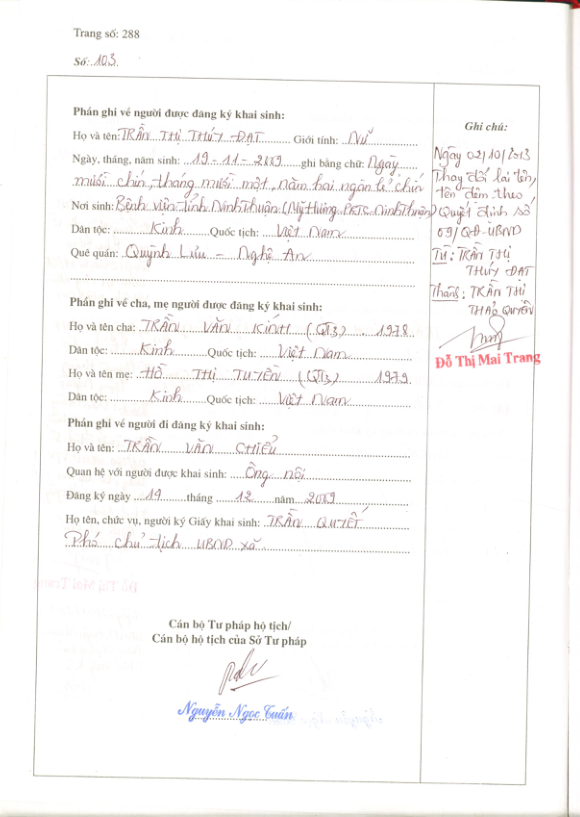 Trang số: 288
Số: 103
Phần ghi về người được đăng ký khai sinh:
Họ và tên: TRẦN THỊ THÚY ĐẠT Giới tính: Nữ
Ngày, tháng, năm sinh: 19-11-2009 ghi bằng chữ: Ngày
mười chín, tháng mười một, năm hai ngàn lẻ chín
Nơi sinh: Bệnh viện tỉnh Ninh Thuận (Mỹ Hương, PRTC, Ninh Thuận)
Dân tộc: Kinh Quốc tịch: Việt Nam
Quê quán: Quỳnh Lưu - Nghệ An
Phần ghi về cha, mẹ người được đăng ký khai sinh:
Họ và tên cha: TRẦN VĂN KÍNH 1978
Dân tộc: Kinh Quốc tịch: Việt Nam
Họ và tên mẹ: HỒ THỊ TUYÊN 1979
Dân tộc: Kinh Quốc tịch: Việt Nam
Phần ghi về người đi đăng ký khai sinh:
Họ và tên: TRẦN VĂN CHIỂU
Quan hệ với người được khai sinh: Ông nội
Đăng ký ngày 19 tháng 12 năm 2009
Họ tên, chức vụ, người ký Giấy khai sinh: TRẦN QUYẾT
Phó chủ tịch UBND xã
Cán bộ Tư pháp hộ tịch/
Cán bộ hộ tịch của Sở Tư pháp
Nguyễn Ngọc Tuấn
Ghi chú:
Ngày 02/10/2013
Thay đổi lại tên,
tên đệm theo
Quyết định số
09/QĐ-UBND
Từ: TRẦN THỊ
THÚY ĐẠT
Thành: TRẦN THỊ
THẢO QUYÊN
Đỗ Thị Mai Trang